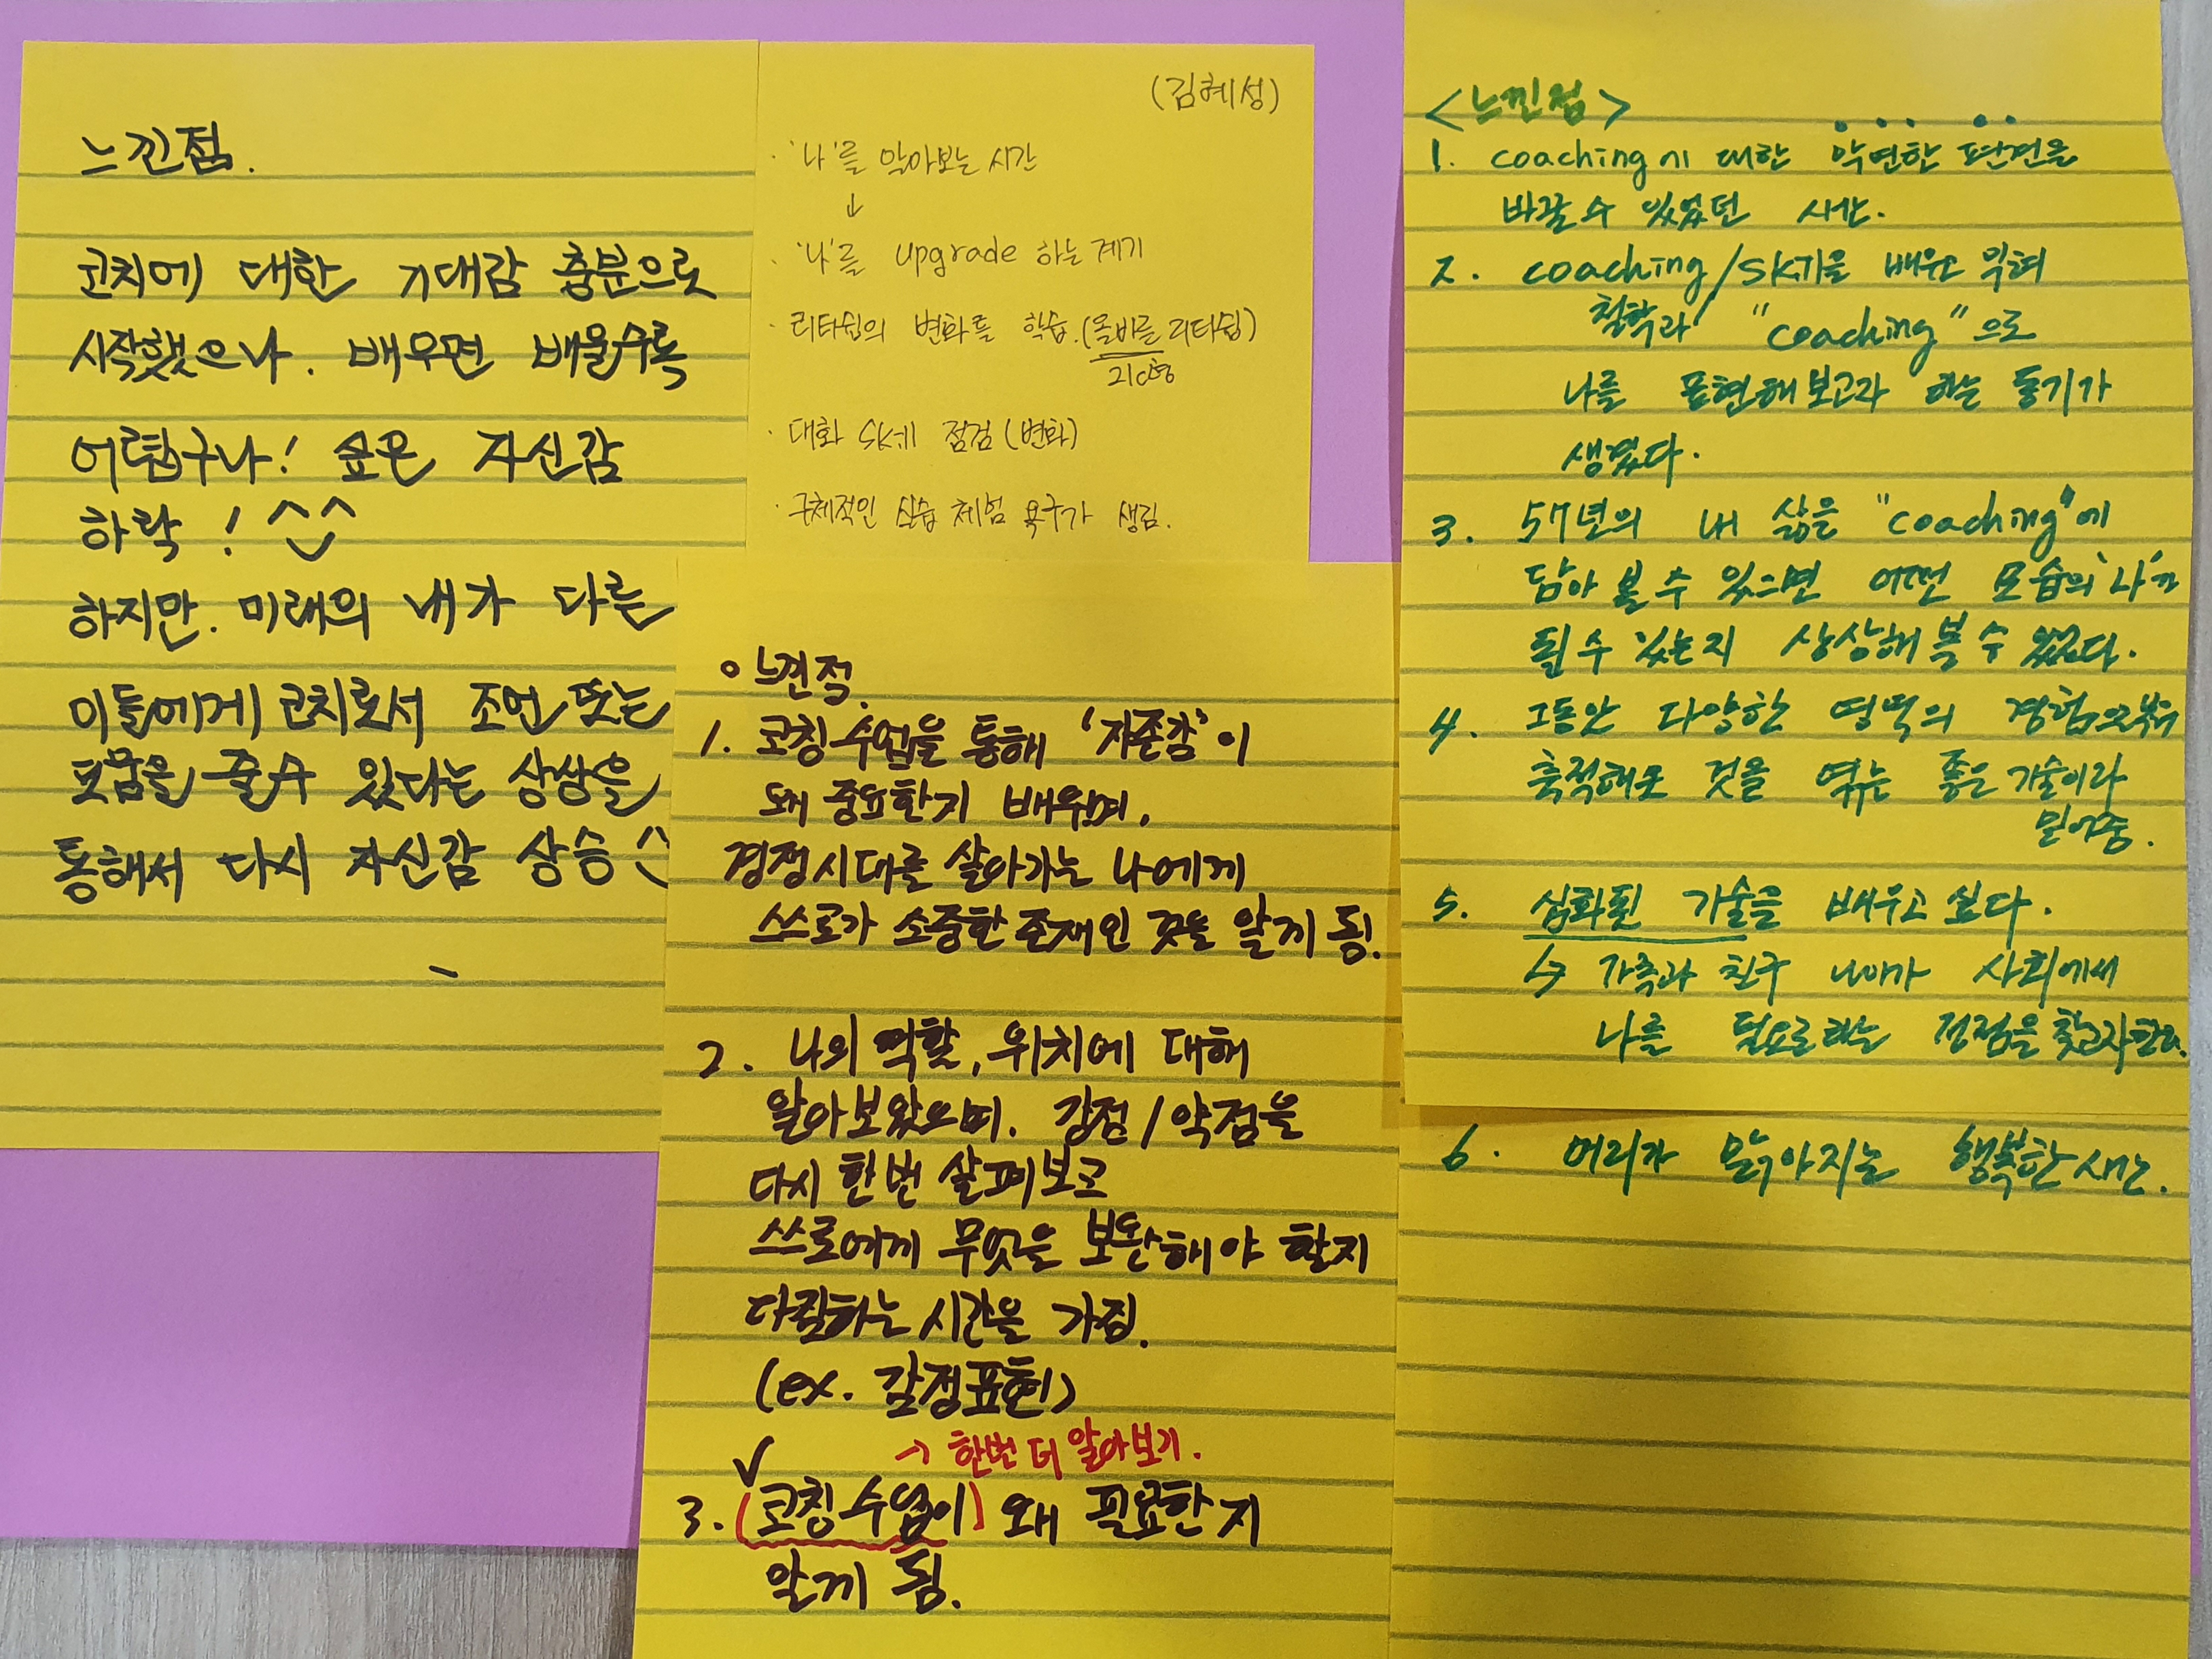 느낀점.
코치에 대한 기대감 충분으로
시작했으나. 배우면 배울수록
어렵구나! 싶은 자신감
하락! ^^
하지만. 미래의 내가 다른
이들에게 코치로서 조언 또는
도움을 줄수 있다는 상상을
통해서 다시 자신감 상승
(김혜성)
· '나'를 알아보는 시간
↓
· '나'를 upgrade 하는 계기
· 리더쉽의 변화를 학습. (올바른 리더쉽)
21c형
· 대화 skill 점검 (변화)
· 구체적인 실습 체험 욕구가 생김.
○ 느낀점.
1. 코칭 수업을 통해 '자존감'이
왜 중요한지 배우며,
경쟁시대를 살아가는 나에게
스스로가 소중한 존재인 것을 알게 됨.
2. 나의 역할, 위치에 대해
알아보았으며. 강점/약점을
다시 한번 살펴보고
스스로에게 무엇을 보완해야 할지
다짐하는 시간을 가짐.
(ex. 감정표현)
→ 한번 더 알아보기.
✓
3. (코칭 수업이) 왜 필요한지
알게 됨.
<느낀점>
1. coaching에 대한 막연한 편견을
바꿀 수 있었던 시간.
2. coaching/skill을 배우고 익혀
철학과 "coaching"으로
나를 표현해 보고자 하는 동기가
생겼다.
3. 57년의 내 삶을 "coaching"에
담아 볼 수 있으면 어떤 모습의 '나'가
될 수 있는지 상상해 볼 수 있었다.
4. 그동안 다양한 영역의 경험으로부터
축적해온 것을 엮는 좋은 기술이라
믿어줌.
5. 심화된 기술을 배우고 싶다.
↳ 가족과 친구 나아가 사회에서
나를 필요로하는 정점을 찾고자한다.
6. 머리가 맑아지는 행복한 시간.